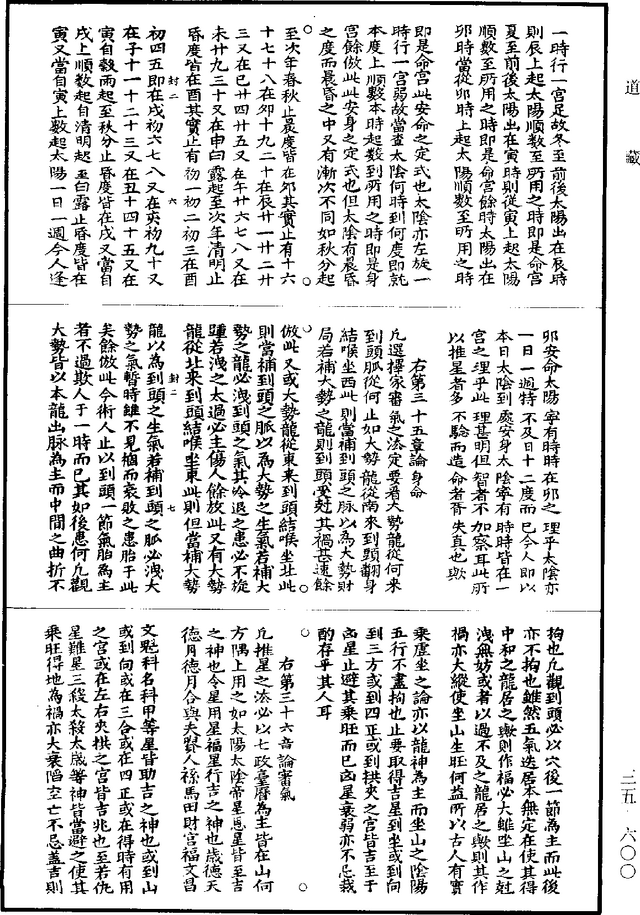 道藏
一時行一宮足故冬至前後太陽出在辰時
則辰上起太陽順數至所用之時即是命宮
夏至前後太陽出在寅時則從寅上起太陽
順數至所用之時即是命宮餘時太陽出在
卯時當從卯時上起太陽順數至所用之時
即是命宮此安命之定式也太陰亦左旋一
時行一宮弱故當查太陰何時到何度即就
本度上順數本時起數到所用之時即是身
宮餘倣此此安身之定式也但太陰有晨昏
之度而晨昏之中又有漸次不同如秋分起
至次年春秋止晨度皆在夘其實止有十六
十七十八在夘十九二十在辰廿一廿二廿
三又在巳廿四廿五又在午廿六七八又在
未廿九三十又在申白露起至次年清明止
昏度皆在酉其實止有初一初二初三在酉
封二 六
初四五即在戌初六七八又在亥初九十又
在子十一十二十三又在丑十四十五又在
寅自穀雨起至秋分止昏度皆在戌又當自
戌上順數起自清明起至白露止昏度皆在
寅又當自寅上數起太陽一日一週今人逢
卯安命太陽寧有時時在卯之理乎太陰亦
一日一週特不及日十二度而已今人即以
本日太陰到處安身太陰寧有時時皆在一
宮之理乎此理甚明但智者不加察耳此所
以推星者多不驗而造命者胥失真也歟
右第三十五章論身命
凡選擇家審氣之法定要看大勢龍從何來
到頭脈從何止如大勢龍從南來到頭翻身
結喉坐西此則當補到頭之脉以為大勢財
局若補大勢之龍則到頭受尅其禍甚速餘
倣此又或大勢龍從東來到頭結喉坐北此
則當補到頭之脈以為大勢之生氣若補大
勢之龍必洩到頭之氣其冷退之患必不旋
踵若洩之太過必主傷人餘放此又有大勢
龍從北來到頭結喉坐東此則但當補大勢
封二 七
龍以為到頭之生氣若補到頭之脈必洩大
勢之氣暫時雖不見禍而衰敗之患胎于此
矣餘倣此今術人止以到頭一節氣胎為主
者不過欺人于一時而已其如後患何凡觀
大勢皆以本龍出脉為主而中間之曲折不
拘也凡觀到頭必以穴後一節為主而此後
亦不拘也雖然五氣迭居本無定在使其得
中和之龍居之歟則作福必大雖坐山之尅
洩無妨或者以過不及之龍居之歟則其作
禍亦大縱使坐山生旺何益所以古人有實
乘虛坐之論亦以龍神為主而坐山之陰陽
五行不盡拘也止要取得吉星到坐或到向
到三方或到四正或到拱夾之宮皆吉至于
凶星止避其乘旺而已凶星衰弱亦不忌裁
酌存乎其人耳
右第三十六章論審氣
凡推星之法必以七政臺曆為主皆在山向
方隅上用之如太陽太陰帝星恩星皆至吉
之神也令星用星福星行吉之神也歲德天
德月德月合與夫貴人祿馬田財官福文昌
文魁科名科甲等星皆助吉之神也或到山
或到向或在三合或在四正或在得時有用
之宮或在左右夾拱之宮皆吉兆也至若仇
星難星三殺太殺太歲等神皆當避之使其
乘旺得地為禍亦大衰陷空亡不忌蓋吉則
三五 六〇〇